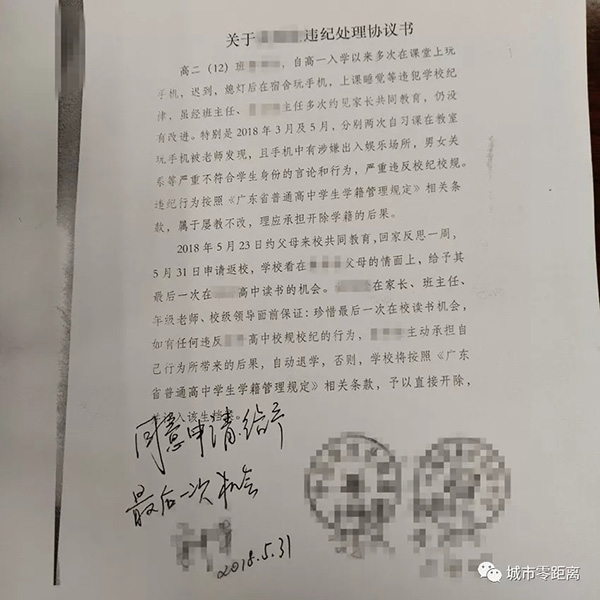 关于 违纪处理协议书
高二（12）班 ，自高一入学以来多次在课堂上玩
手机，迟到，熄灯后在宿舍玩手机，上课睡觉等违犯学校纪
律，虽经班主任、 主任多次约见家长共同教育，仍没
有改进。特别是 2018 年 3 月及 5 月，分别两次自习课在教室
玩手机被老师发现，且手机中有涉嫌出入娱乐场所，男女关
系等严重不符合学生身份的言论和行为，严重违反校纪校规。
违纪行为按照《广东省普通高中学生学籍管理规定》相关条
款，属于屡教不改，理应承担开除学籍的后果。
2018 年 5 月 23 日约父母来校共同教育，回家反思一周，
5 月 31 日申请返校，学校看在 父母的情面上，给予其
最后一次在 高中读书的机会。 在家长、班主任、
年级老师、校级领导面前保证：珍惜最后一次在校读书机会，
如有任何违反 高中校规校纪的行为， 主动承担自
己行为所带来的后果，自动退学，否则，学校将按照《广东
省普通高中学生学籍管理规定》相关条款，予以直接开除，
入该生档
同意申请给予
最后一次机会
2018.5.31
城市零距离